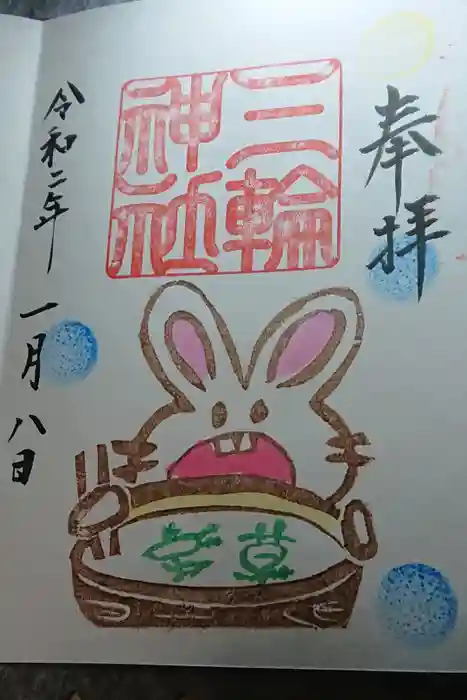 奉拝
三輪
神社
令和二年一月八日
七草